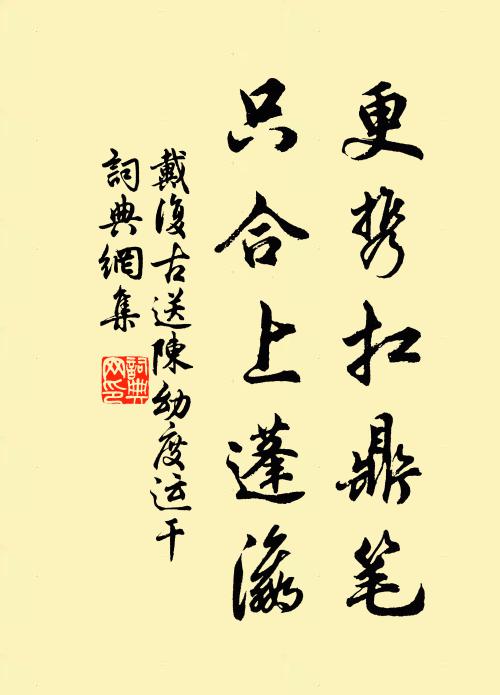 更携扛鼎笔
只合上蓬瀛
戴復古送陳幼度运干
詞典網集
詞典网印